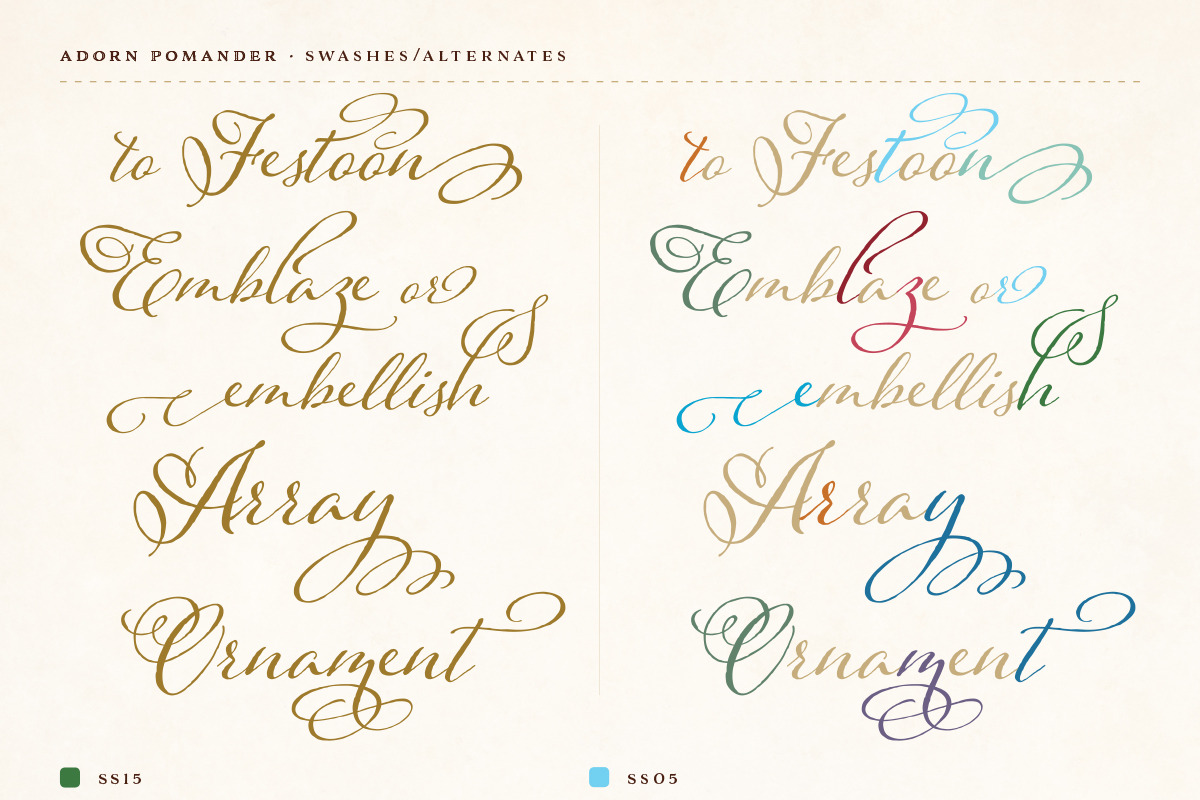 ADORN POMANDER · SWASHES/ALTERNATES
to Festoon
Emblaze or
embellish
Array
Ornament
to Festoon
Emblaze or
embellish
Array
Ornament
SS15
SS05